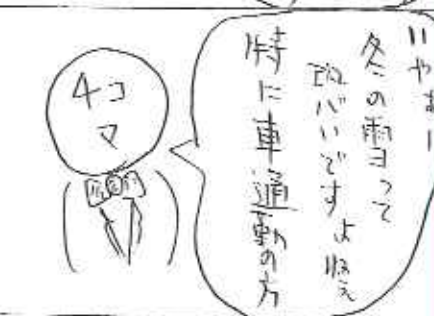 いやぁー
冬の雪って
厄介いですよねぇ
特に車通勤の方
4コ
マ